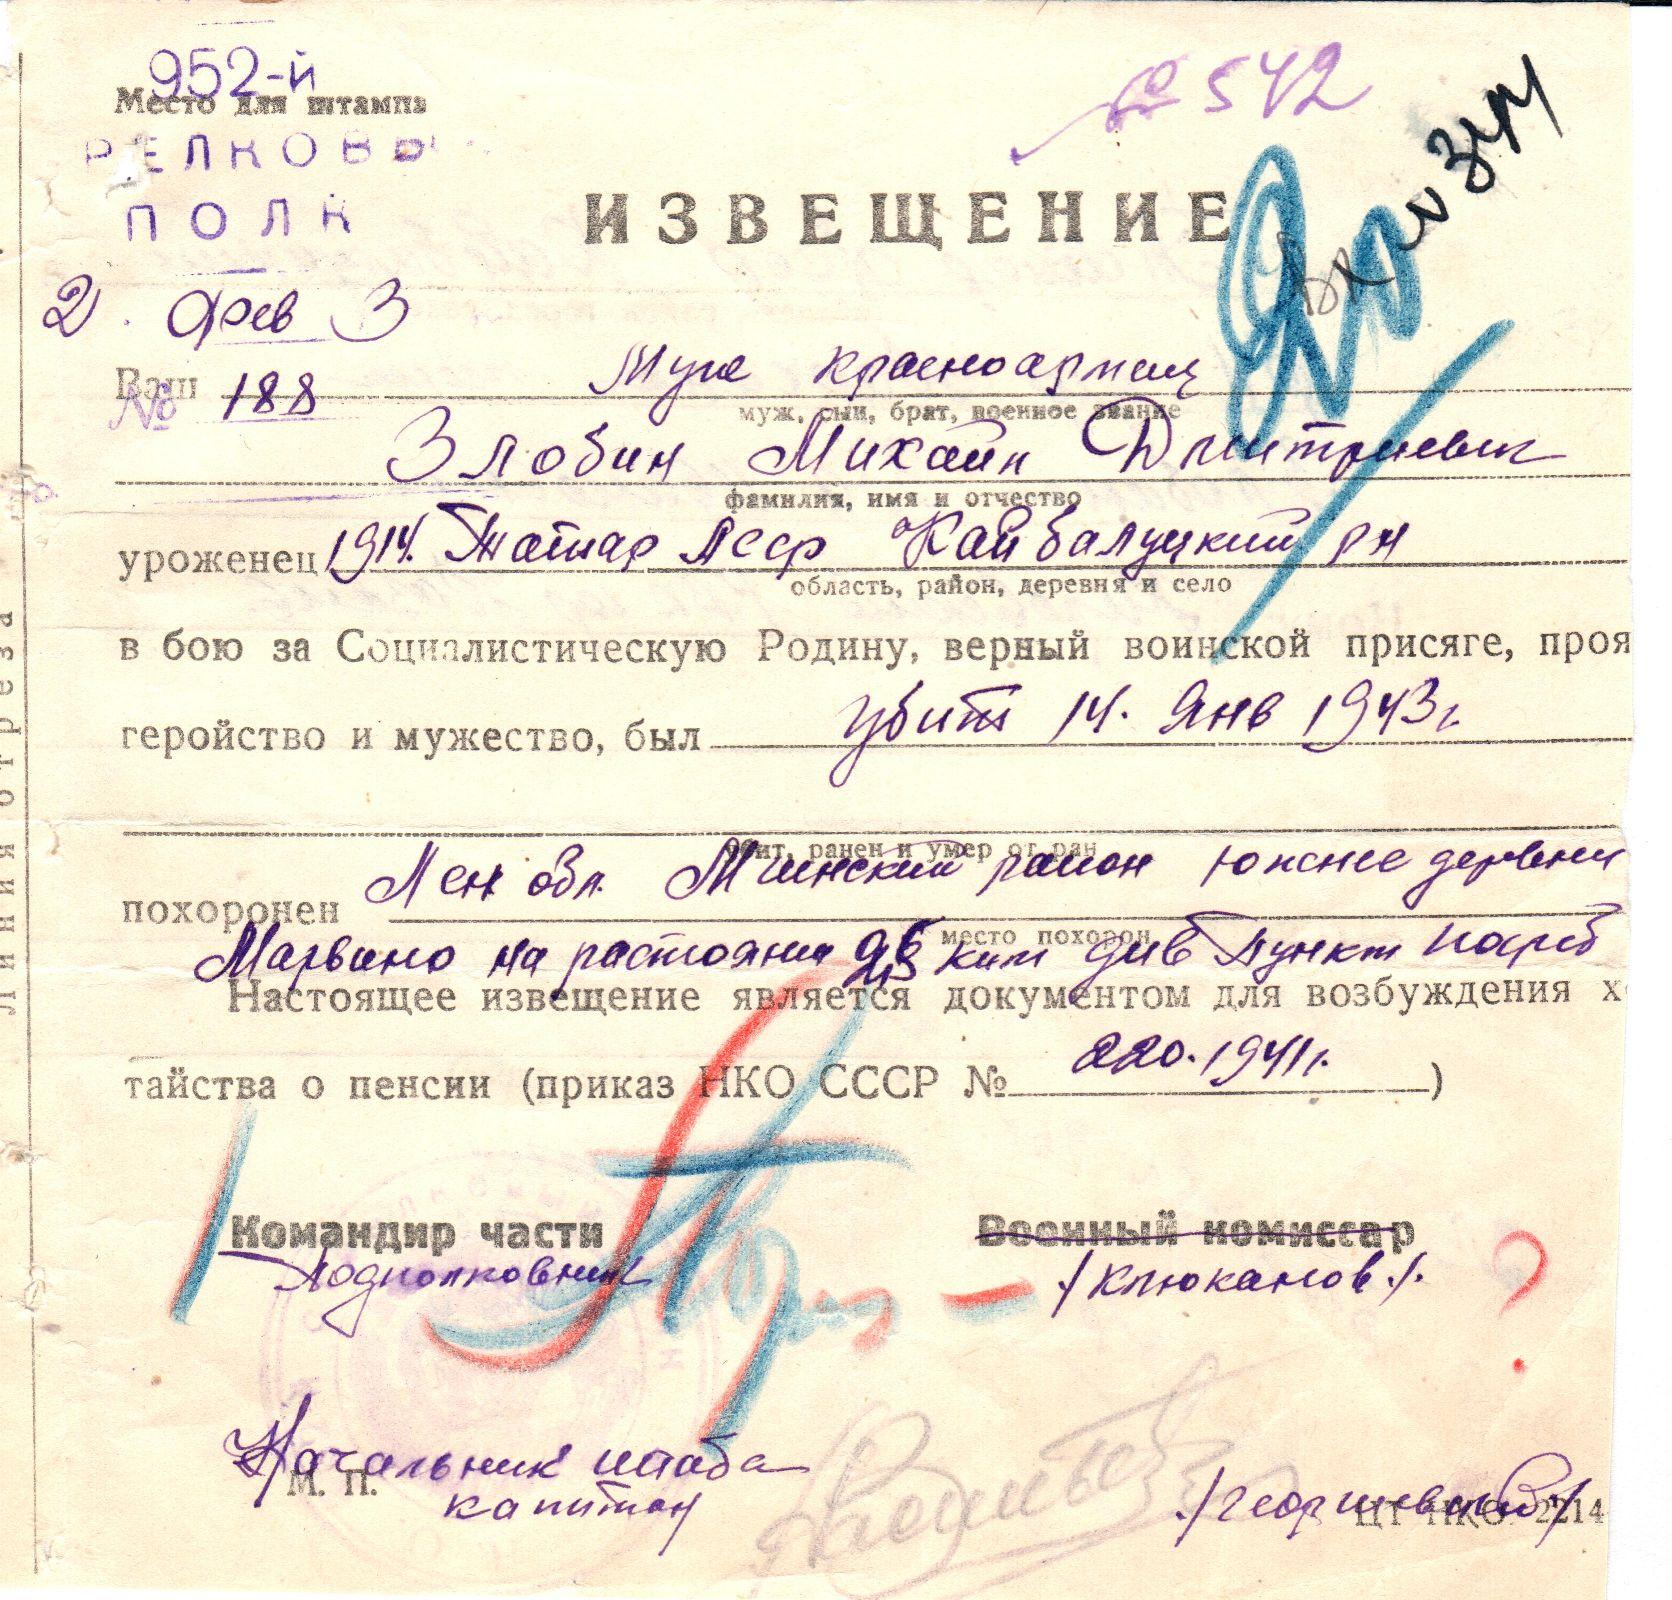 952-й
Место для штампа
РЕЛКОВЫ
ПОЛК
№ 542
ИЗВЕЩЕНИЕ
2. Фев 3
Ваш Муж красноармеец
№ 188
муж, сын, брат, военное звание
Злобин Михаил Дмитриевич
фамилия, имя и отчество
уроженец 1914. Татпар АССР Кайбалуцкий рн
область, район, деревня и село
в бою за Социалистическую Родину, верный воинской присяге, проя
геройство и мужество, был убит 14. Янв 1943г.
убит, ранен и умер от ран
похоронен Лен обл. Мгинский район южнее деревни
место похорон
Марвино на растоянии 2,5 килм див пункт погреб
Настоящее извещение является документом для возбуждения х
тайства о пенсии (приказ НКО СССР № 220. 1941г.)
Командир части Военный комиссар
Подполковник /Клюканов./.
?
Начальник штаба
М. П.
капитан
./Георгиевский/
ЦТ НКО 2214
Линия отреза